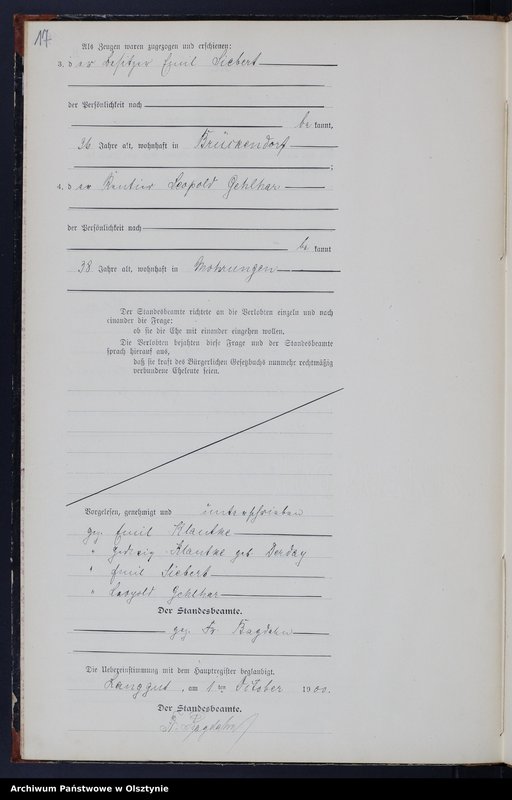 17
Als Zeugen waren zugezogen und erschienen:
3. der Besitzer Emil Siebert
der Persönlichkeit nach
bekannt,
36 Jahre alt, wohnhaft in Brückendorf
;
4. der Rentier Leopold Gehlhar
der Persönlichkeit nach
bekannt
38 Jahre alt, wohnhaft in Mohrungen
Der Standesbeamte richtete an die Verlobten einzeln und nach
einander die Frage:
ob sie die Ehe mit einander eingehen wollen.
Die Verlobten bejahten diese Frage und der Standesbeamte
sprach hierauf aus,
daß sie kraft des Bürgerlichen Gesetzbuchs nunmehr rechtmäßig
verbundene Eheleute seien.
Vorgelesen, genehmigt und unterschrieben
gez. Emil Klautke
" Klautke geb. Derday
" Emil Siebert
" Leopold Gehlhar
Der Standesbeamte.
gez. Fr. Bagdahn
Die Uebereinstimmung mit dem Hauptregister beglaubigt.
Langgut, am 1 ten Oktober 1900.
Der Standesbeamte.
Fr. Bagdahn
Archiwum Państwowe w Olsztynie